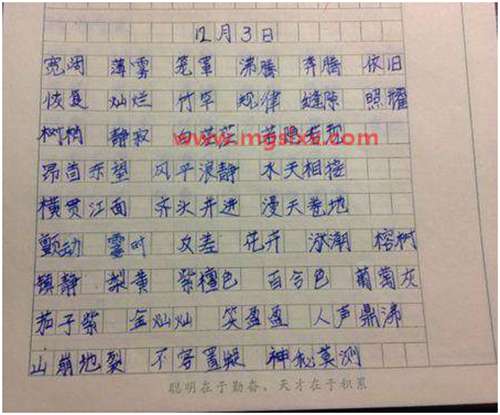 12月3日
宽阔 薄雾 笼罩 沸腾 奔腾 依旧
恢复 灿烂 竹竿 规律 缝隙 照耀
静寂 白茫茫 若隐若现
昂首东望 风平浪静 水天相接
横贯江面 齐头并进 漫天卷地
颤动 霎时 花卉 榕树
镇静 梨黄 紫檀色 百合色 葡萄灰
茄子紫 金灿灿 笑盈盈 人声鼎沸
山崩地裂 不容置疑 神秘莫测
聪明在于勤奋，天才在于积累